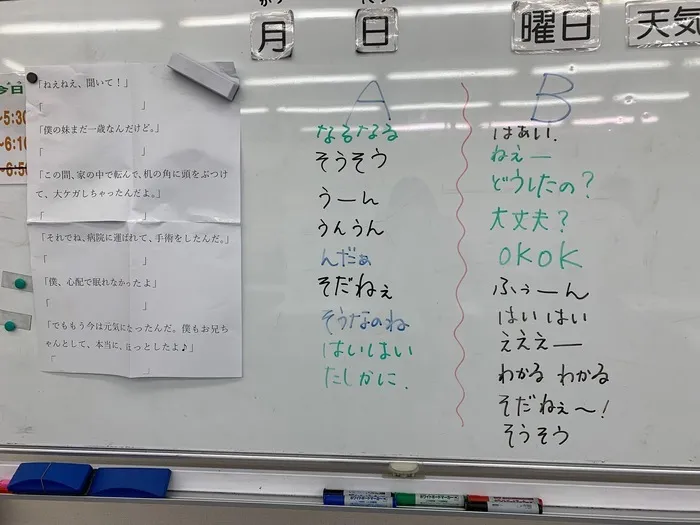 月
日
曜日
天気
今日
~5:30
~6:10
~6:50
「ねえねえ、聞いて！」
「　　　　　　　　」
「僕の妹まだ一歳なんだけど。」
「　　　　　　　　」
「この間、家の中で転んで、机の角に頭をぶつけ
て、大ケガしちゃったんだよ。」
「　　　　　　　　」
「それでね、病院に運ばれて、手術をしたんだ。」
「　　　　　　　　」
「僕、心配で眠れなかったよ」
「　　　　　　　　」
「でももう今は元気になったんだ。僕もお兄ち
ゃんとして、本当に、ほっとしたよ♪」
「
A
なるなる
そうそう
うーん
うんうん
んだぁ
そだねぇ
そうなのね
はいはい
たしかに.
B
はぁい.
ねぇー
どうしたの？
大丈夫？
OKOK
ふぅーん
はいはい
えええー
わかる わかる
そだねぇ〜！
そうそう